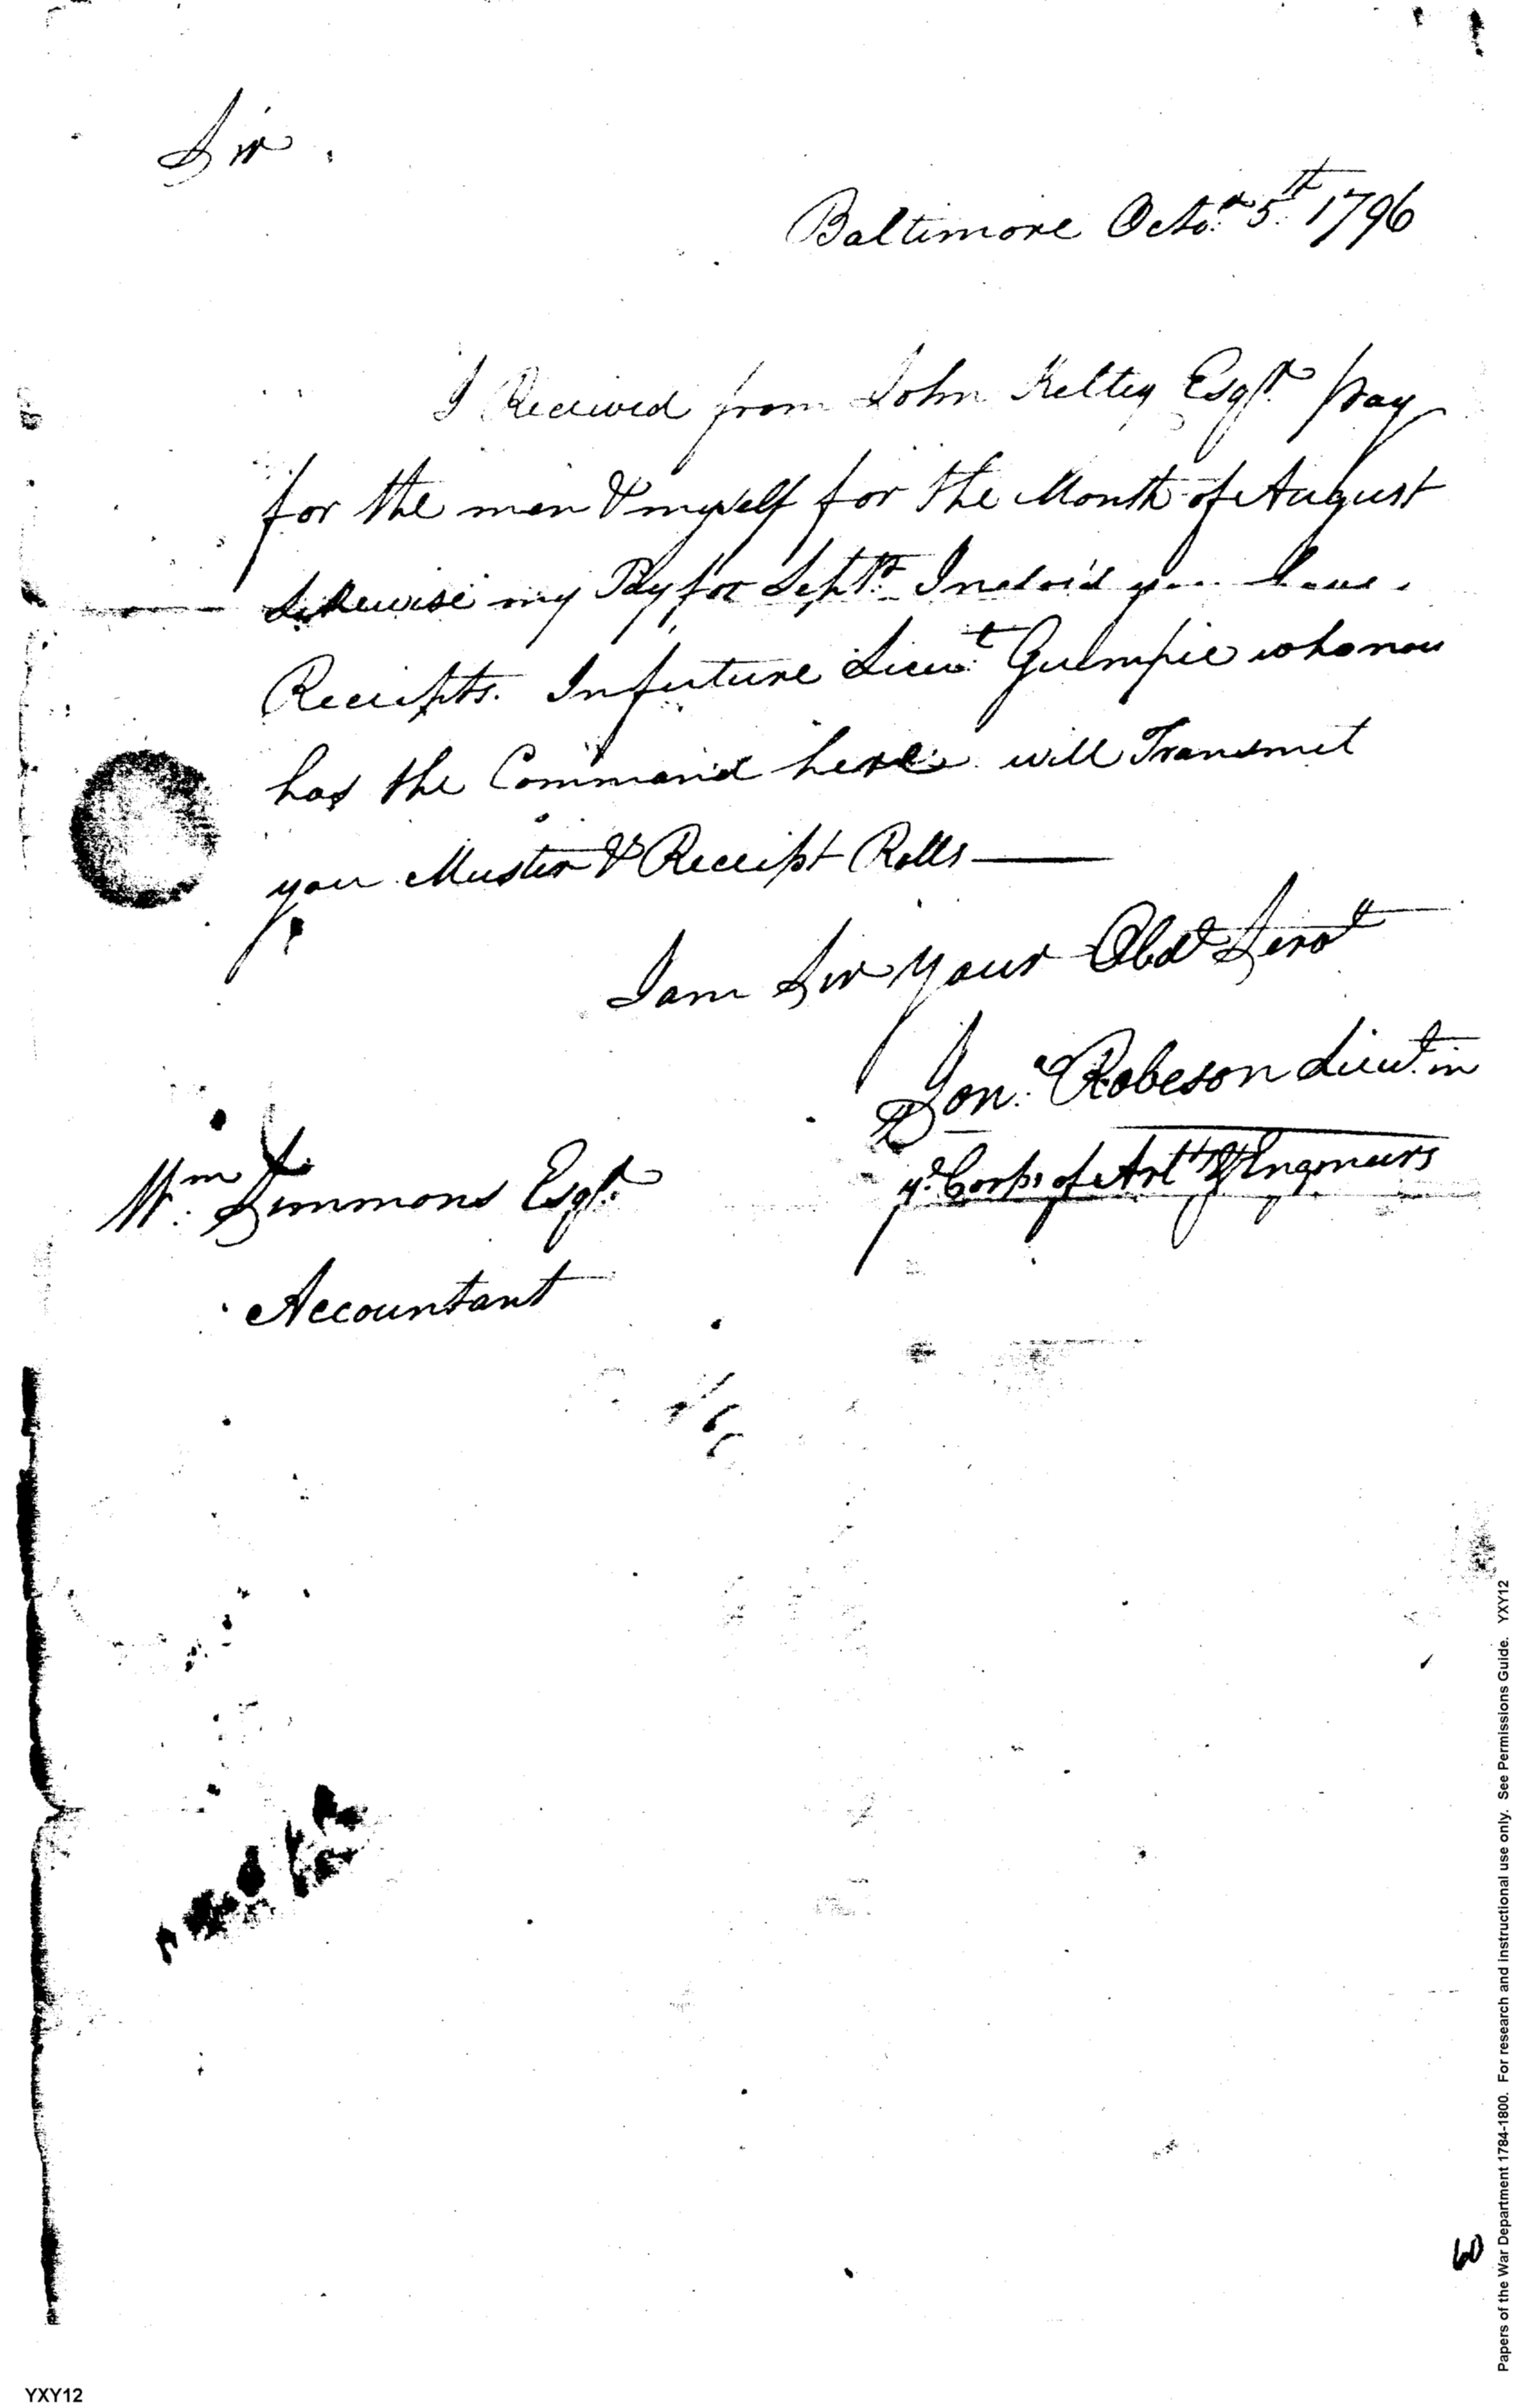 Sir.
Baltimore Octo.r 5.th 1796
I Received from John Keltey Esqr. pay
for the men & myself for the Month of August
Likewise my Pay for Septr. Inclos'd you have
Receipts. In future Lieu.t Guimpie who now
has the Command here will Transmit
you Muster & Receipt Rolls —
I am Sir your Obdt Servt
Jon.a Robeson Lieut. in
ye. Corps of Artts & Engineers
Wm. Simmons Esqr.
Accountant
60
Papers of the War Department 1784-1800. For research and instructional use only. See Permissions Guide. YXY12
YXY12